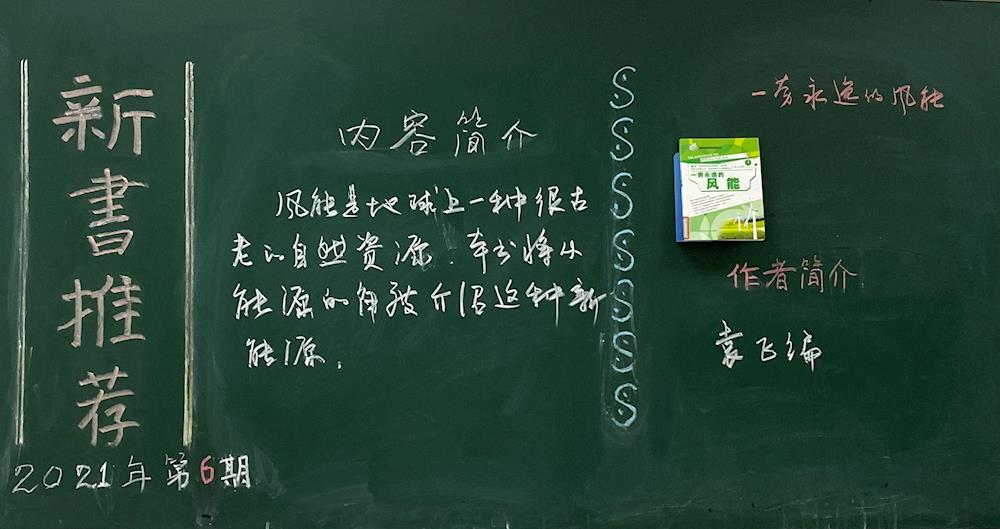 新書推荐
2021年第6期
内容简介
风能是地球上一种很古
老的自然资源.本书将从
能源的角度介绍这种新
能源.
SSSSSSS
一劳永逸的风能
一劳永逸的
风能
作者简介
袁飞编